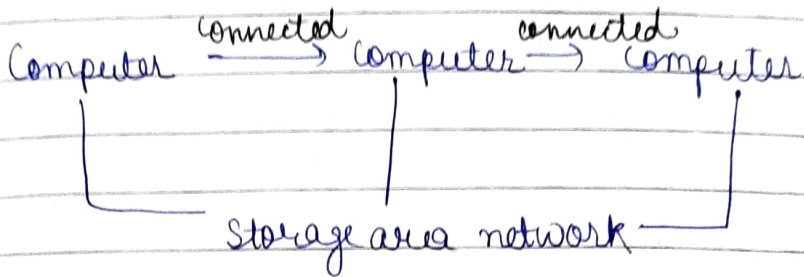 connected connected
Computer computer computer
Storage area network